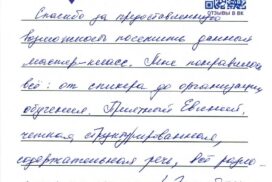 ОТЗЫВЫ В ВК
Спасибо за предоставленную
возможность посетить данный
мастер-класс. Мне понравилось
всё: от спикера до организации
обучения. Приятной Евгений,
четкая, структурированная,
содержательная речь, всё